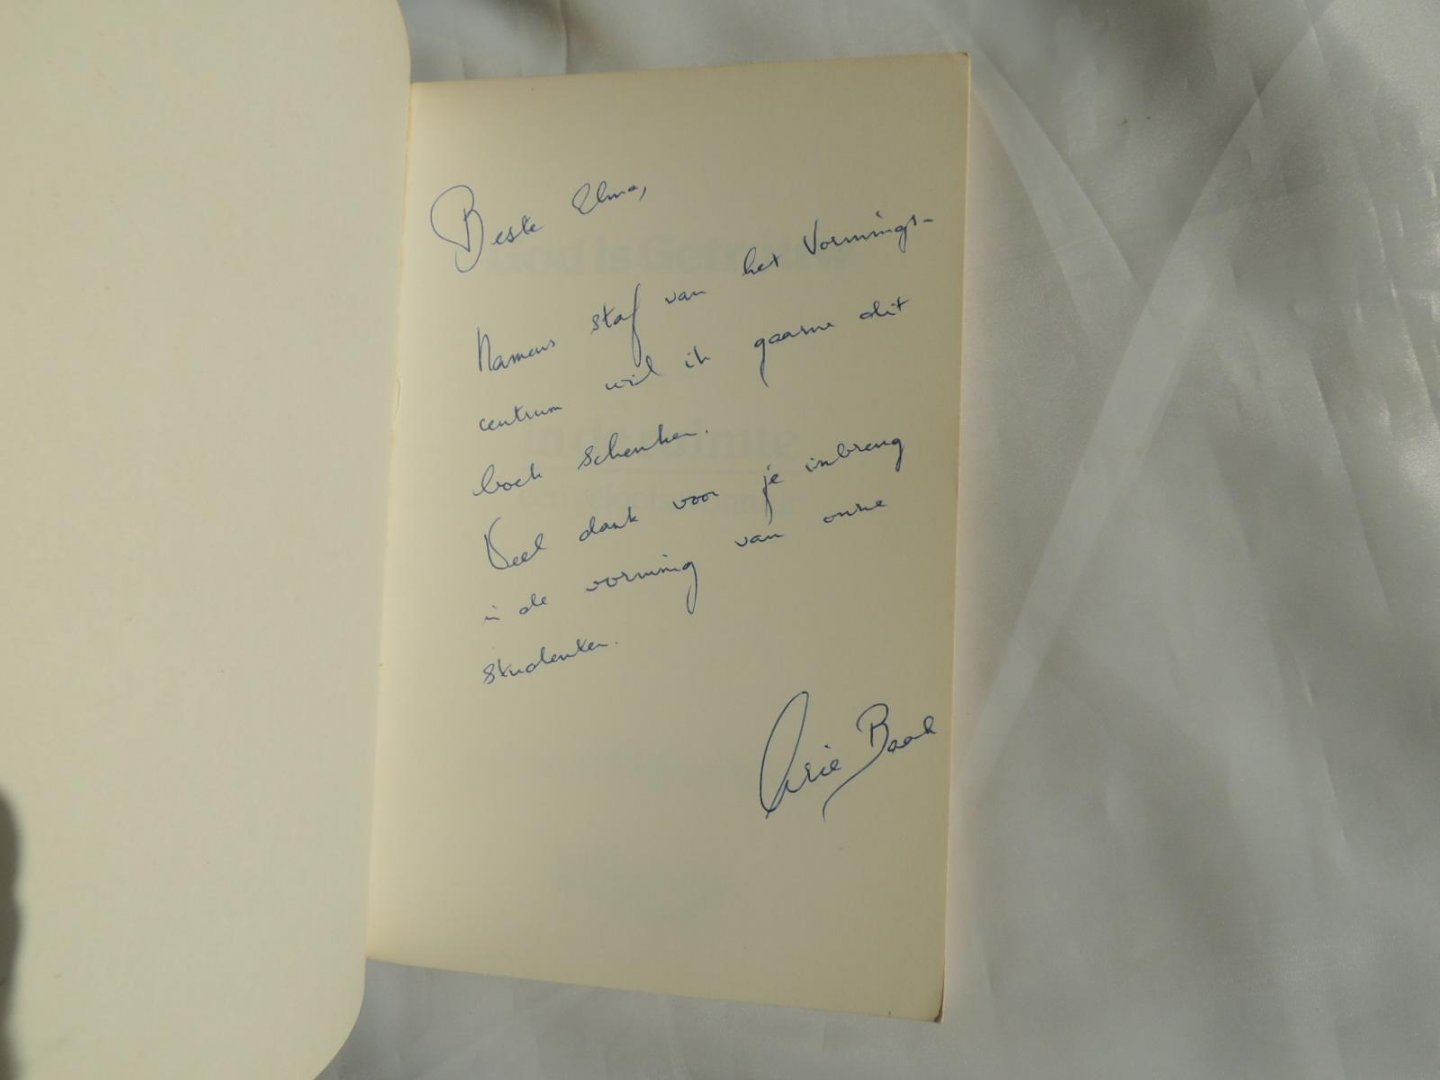 Beste Elma,
Namens staf van het Vormings-
centrum wil ik gaarne dit
boek schenken.
Veel dank voor je inbreng
in de vorming van onze
studenten.
Arie Baak